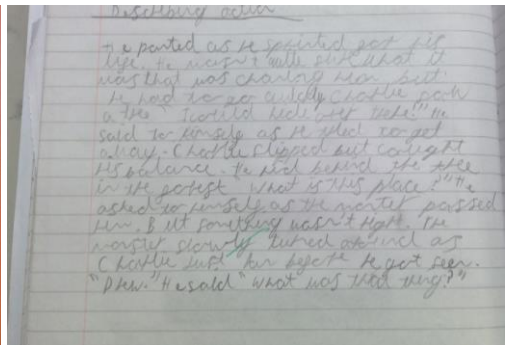 Describing action
He panted as he sprinted for his
life. He wasn't quite sure what it
was that was chasing him but
he had to go quickly Charlie saw
a tree "I could hide over there!" He
said to himself as he tried to get
away. Charlie slipped but caught
his balance. He hid behind the tree
in the forest. What is this place?" He
asked to himself as the monster passed
him. But something wasn't right. The
monster slowly turned around as
Charlie just ran before he got seen.
"Phew." He said "what was that thing?"